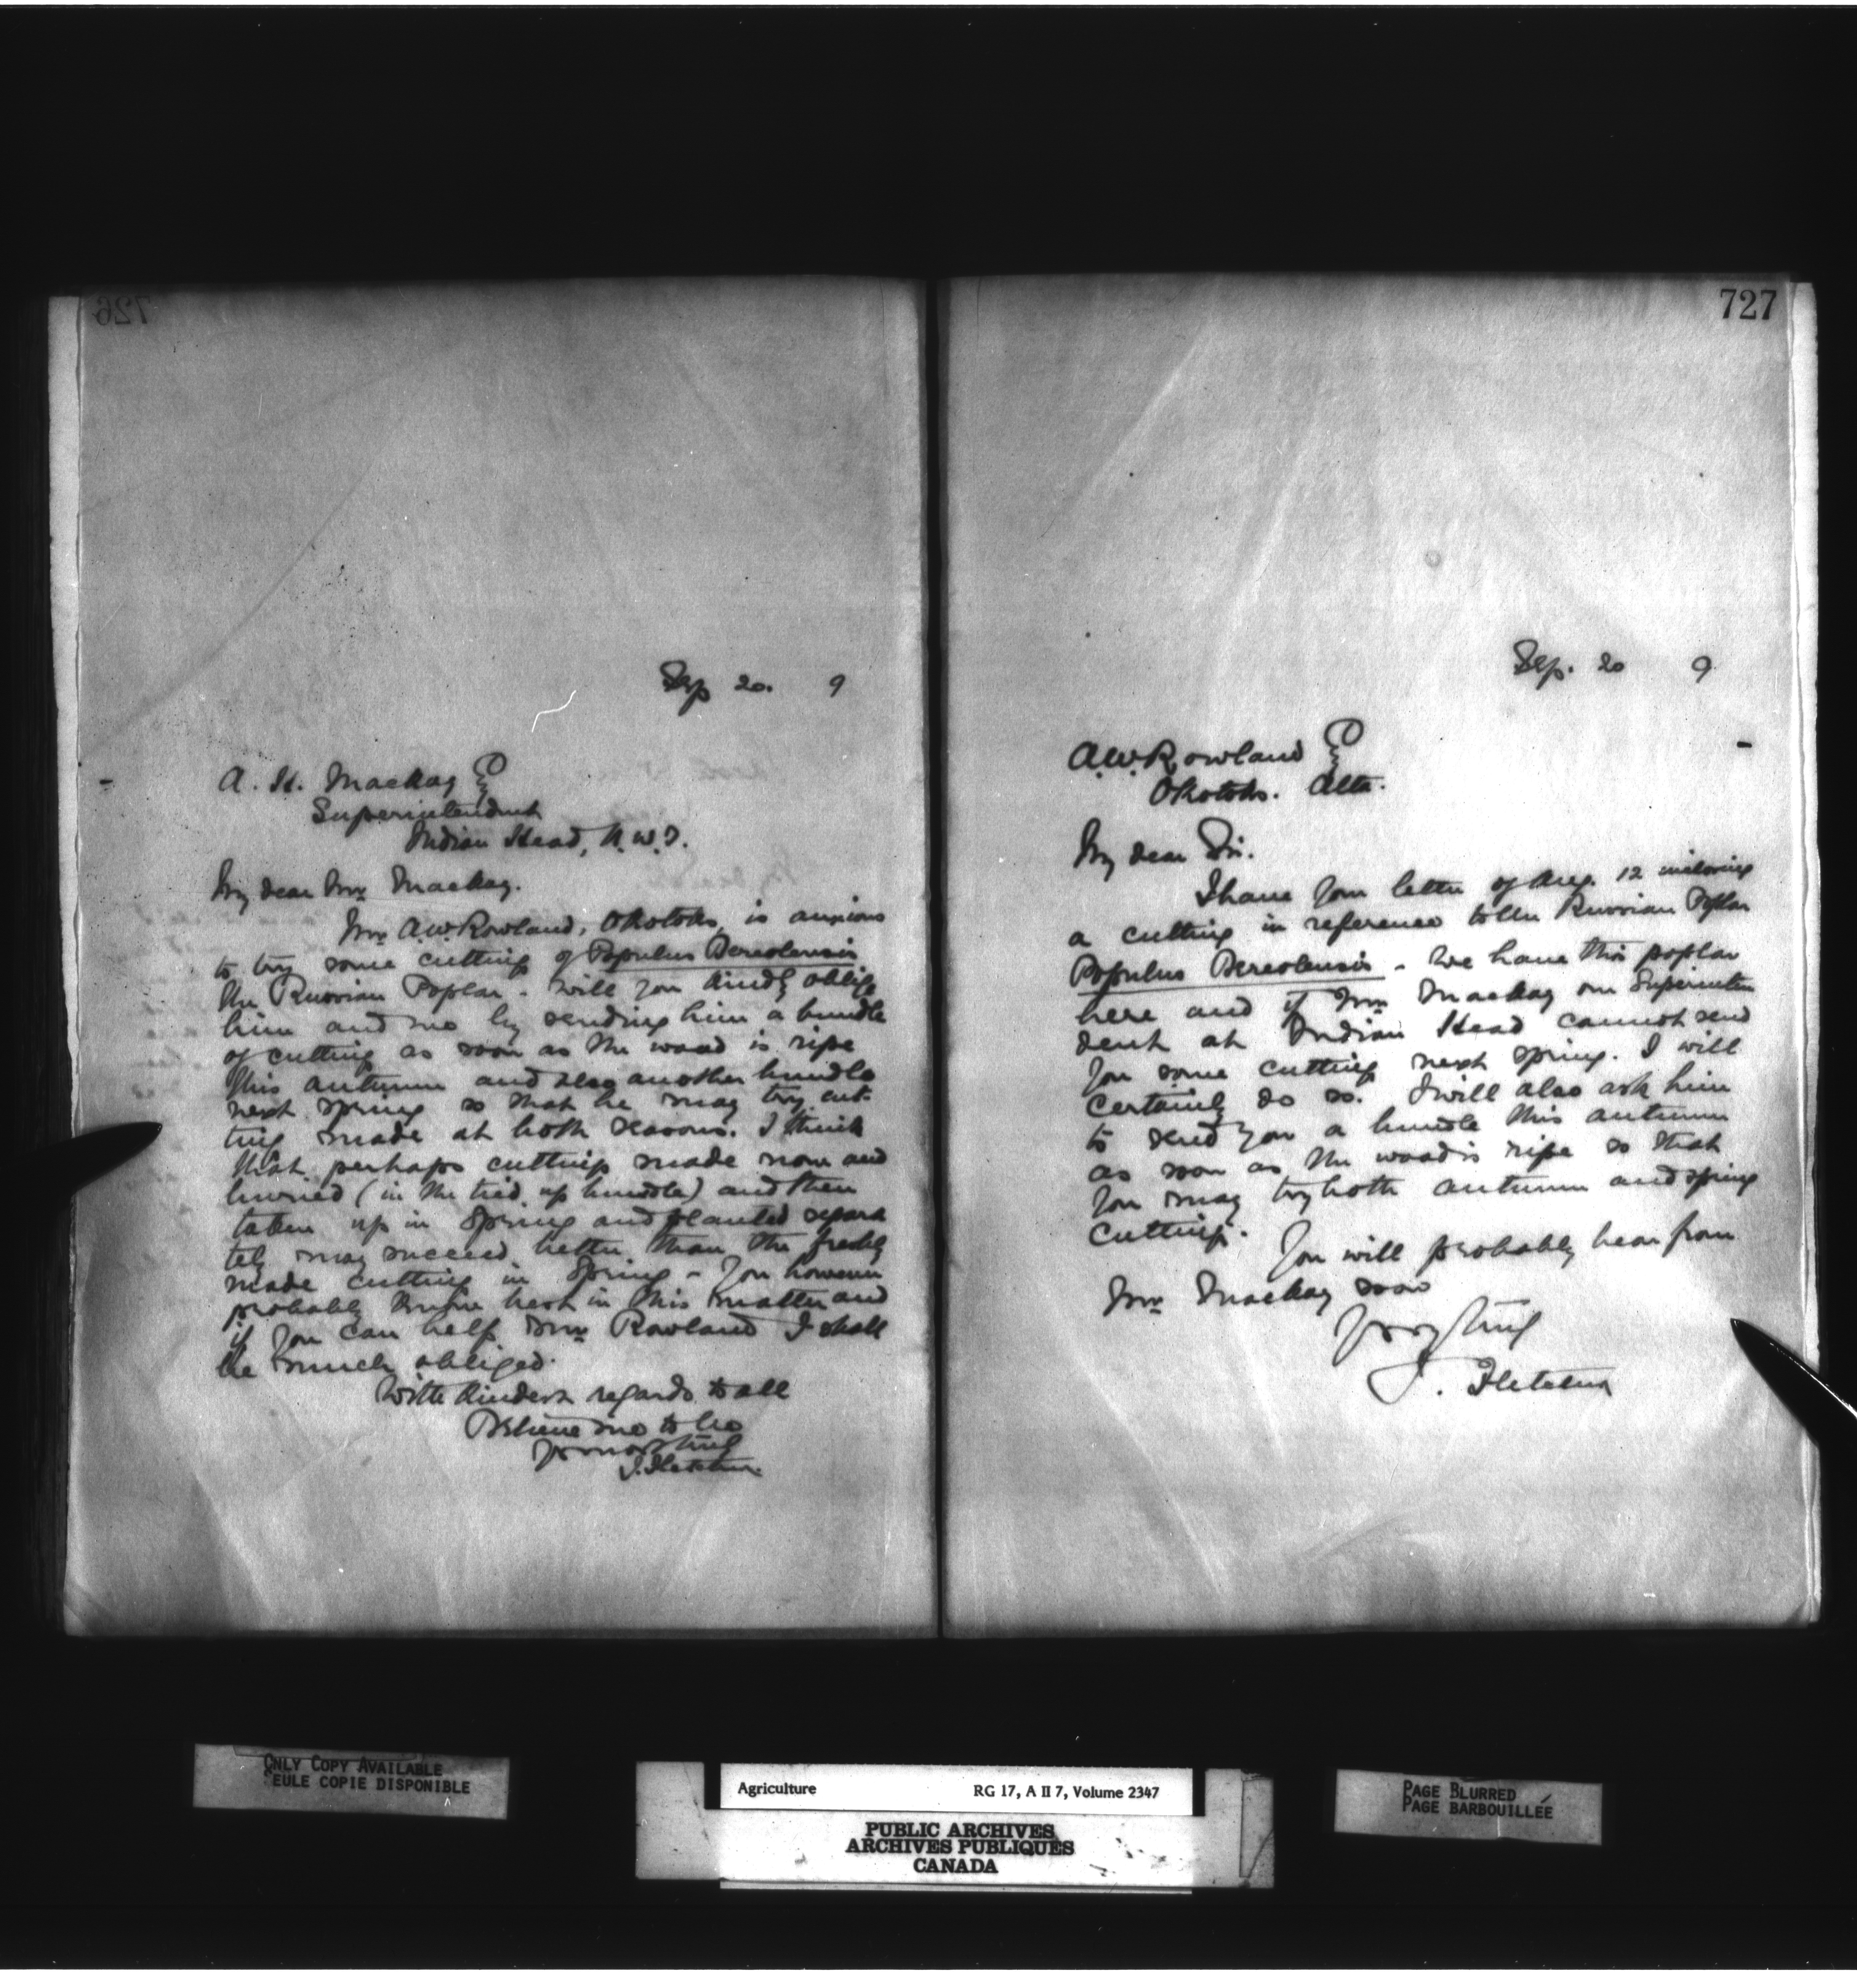 726
Sep 20. 9
A. H. Mackay Esq
Superintendent
Indian Head, N.W.T.
My dear Mr Mackay.
Mr A.W. Rowland, Okotoks, is anxious
to try some cutting of Populus Bereolensis
the Russian Poplar. Will you kindly oblige
him and me by sending him a bundle
of cutting as soon as the wood is ripe
this autumn and also another bundle
next spring so that he may try cut-
ting made at both seasons. I think
that perhaps cuttings made now and
burried (in the tied up bundle) and then
taken up in Spring and planted separa
tely may succeed better than the freshly
made cutting in Spring - You however
probably know best in this matter and
if you can help Mr Rowland I shall
be much obliged.
With kindest regards to all
Believe me to be
Yours truly
J. Fletcher
727
Sep. 20 9
A.W. Rowland Esq
Okotoks. Alta.
My dear Sir.
I have your letter of Aug. 12 inclosing
a cutting in reference to the Russian Poplar
Populus Bereolensis - We have this poplar
here and if Mr Mackay our Superinten
dent at Indian Head cannot send
you some cutting next spring. I will
certainly do so. I will also ask him
to send you a bundle this autumn
as soon as the wood is ripe so that
you may try both autumn and spring
cuttings.
You will probably hear from
Mr Mackay soon
Yours truly
J. Fletcher
ONLY COPY AVAILABLE
SEULE COPIE DISPONIBLE
Agriculture RG 17, A II 7, Volume 2347
PUBLIC ARCHIVES
ARCHIVES PUBLIQUES
CANADA
PAGE BLURRED
PAGE BARBOUILLÉE